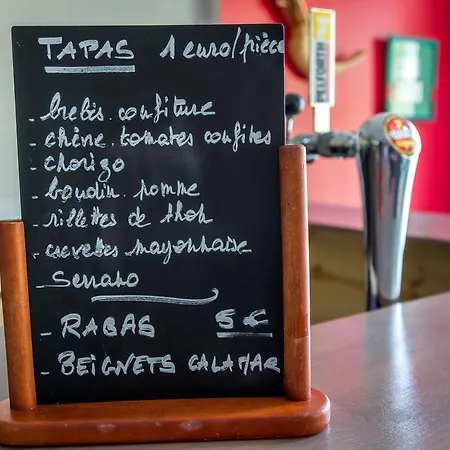 TAPAS 1 euro/pièce
- brebis confiture
- chèvre tomates confites
- chorizo
- boudin pomme
- rillettes de thon
- crevettes mayonnaise
- Serrano
- RABAS 5€
- BEIGNETS CALAMAR
PELFORTH